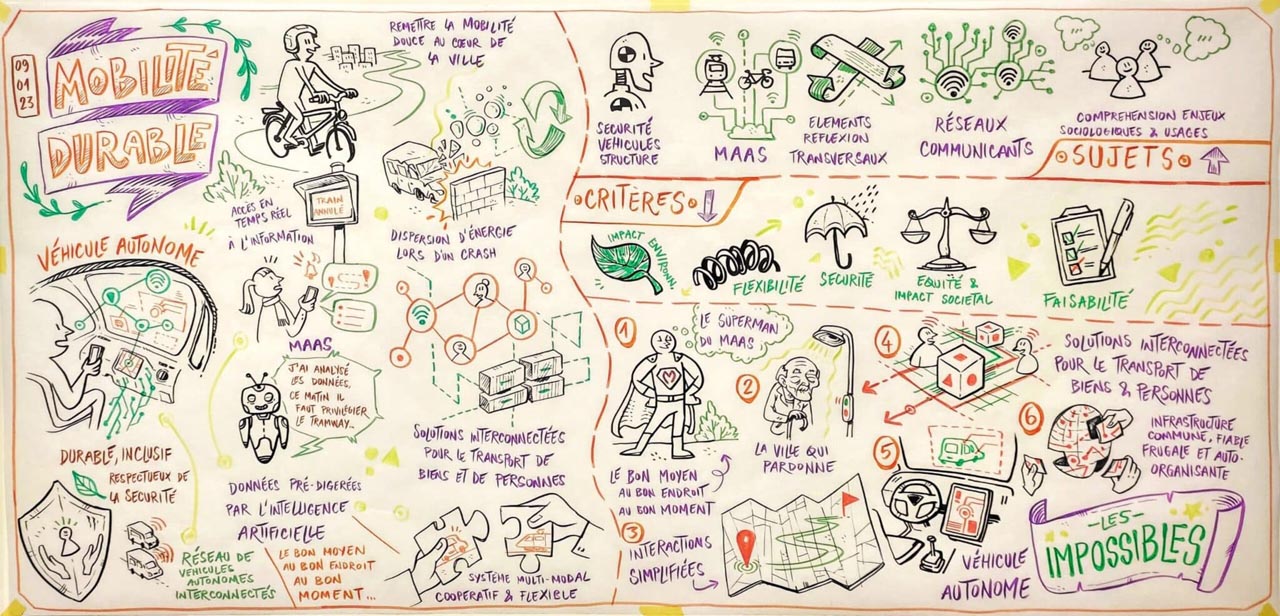 09
01
23
MOBILITÉ
DURABLE
REMETTRE LA MOBILITÉ
DOUCE AU CŒUR DE
LA VILLE
ACCÈS EN
TEMPS RÉEL
À L'INFORMATION
TRAIN
ANNULÉ
DISPERSION D'ÉNERGIE
LORS D'UN CRASH
VÉHICULE AUTONOME
MAAS
J'AI ANALYSÉ
LES DONNÉES,
CE MATIN IL
FAUT PRIVILÉGIER
LE TRAMWAY...
DURABLE, INCLUSIF
RESPECTUEUX DE
LA SECURITÉ
DONNÉES PRÉ-DIGEREES
PAR L'INTELLIGENCE
ARTIFICIELLE
SOLUTIONS INTERCONNECTÉES
POUR LE TRANSPORT DE
BIENS ET DE PERSONNES
RÉSEAU DE
VEHICULES
AUTONOMES
INTERCONNECTÉS
LE BON MOYEN
AU BON ENDROIT
AU BON
MOMENT...
SYSTÈME MULTI-MODAL
COOPERATIF & FLEXIBLE
SECURITÉ
VEHICULES
STRUCTURE
MAAS
ELEMENTS
REFLEXION
TRANSVERSAUX
RÉSEAUX
COMMUNICANTS
COMPREHENSION ENJEUX
SOCIOLOGIQUES & USAGES
SUJETS
CRITÈRES
IMPACT ENVIRONN.
FLEXIBILITÉ
SECURITÉ
EQUITÉ &
IMPACT SOCIETAL
FAISABILITÉ
1
LE SUPERMAN
DU MAAS
LE BON MOYEN
AU BON ENDROIT
AU BON MOMENT
2
LA VILLE QUI
PARDONNE
3
INTERACTIONS
SIMPLIFIÉES
4
SOLUTIONS INTERCONNECTÉES
POUR LE TRANSPORT DE
BIENS & PERSONNES
5
VÉHICULE
AUTONOME
6
INFRASTRUCTURE
COMMUNE, FIABLE
FRUGALE ET AUTO-
ORGANISANTE
LES
IMPOSSIBLES